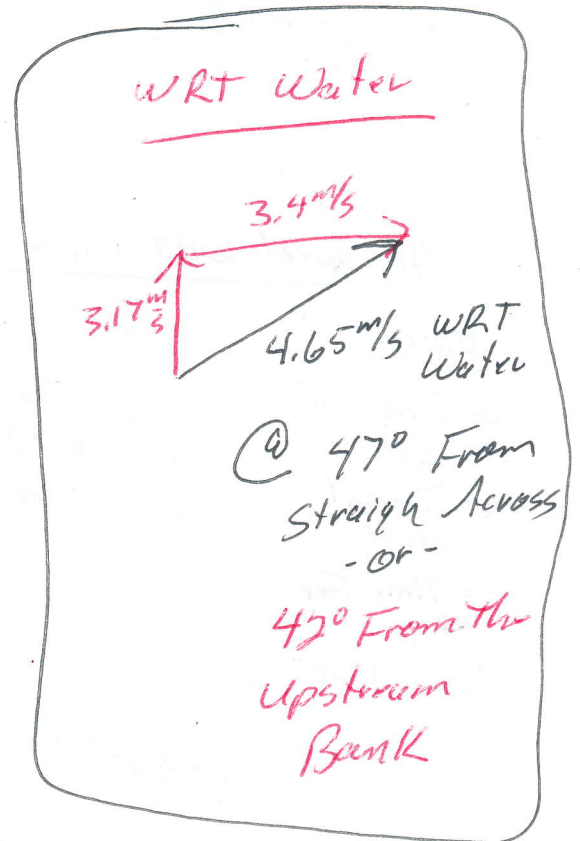 WRT Water
3.4 m/s
3.17 m/s
4.65 m/s WRT
Water
@ 47° From
Straigh Across
- or -
42° From The
Upstream
Bank